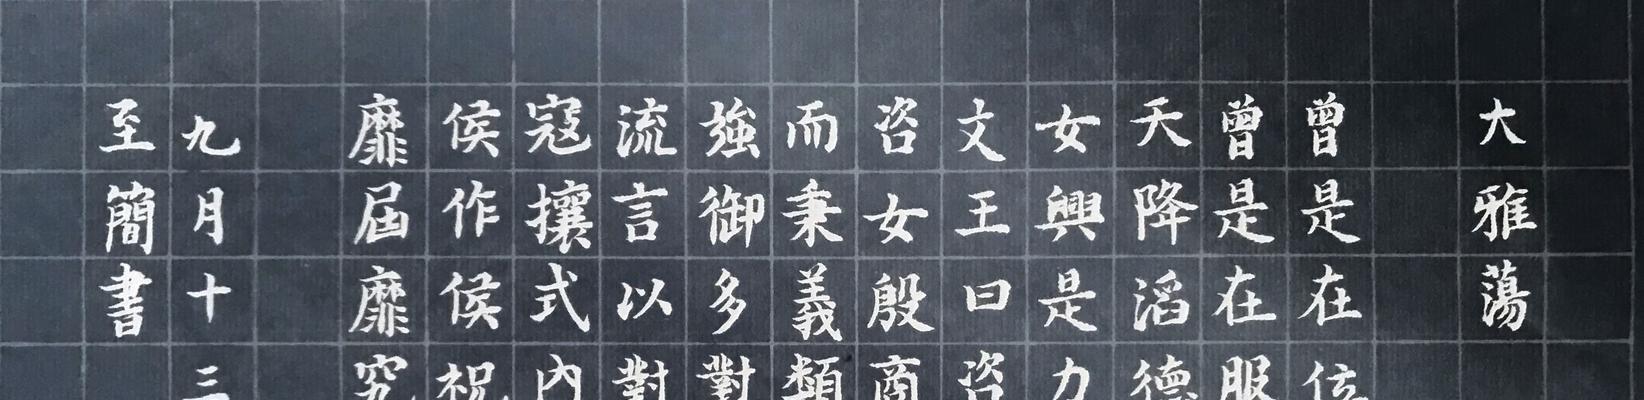 大雅蕩
曾是在位
曾是在服
天降滔德
女興是力
文王曰咨
咨女殷商
而秉義類
強御多對
流言以對
寇攘式內
侯作侯祝
靡屆靡究
九月十三
至簡書